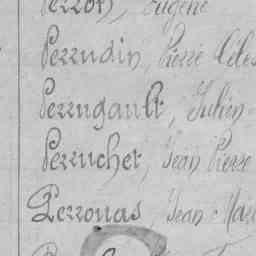 Perron, Eugène
Perrudin, Pierre
Perrugault, Julien
Perruchet, Jean Pierre
Perrouas, Jean